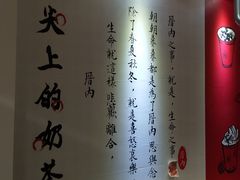 尖上的奶茶
層內之事，就是，生命之事
朝朝暮暮都是為了層內思與念
除了春夏秋冬，就是喜怒哀樂
生命就這樣悲歡離合，
層內